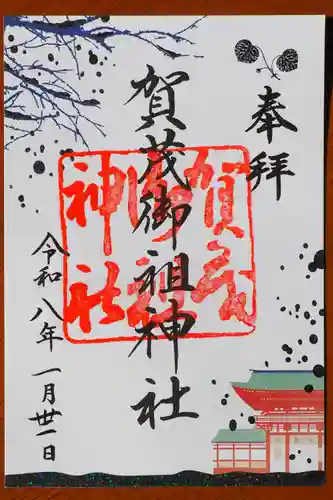 奉拝
賀茂御祖神社
賀茂
御祖
神社
令和八年一月廿一日